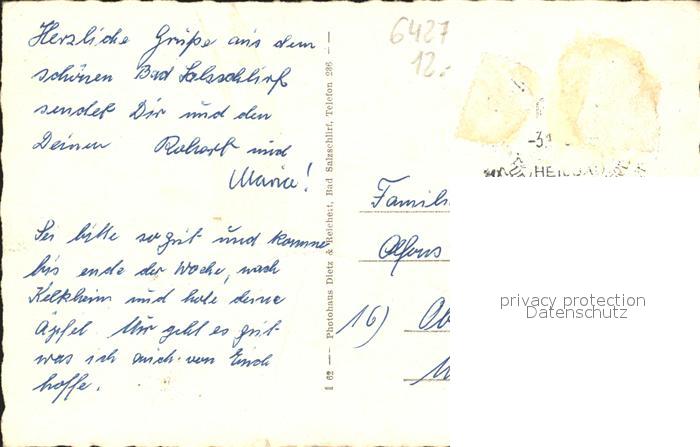 Herzliche Grüße aus dem
schönen Bad Salzschlirf
sendet Dir und den
Deinen Robert und
Maria!
Sei bitte so gut und komme
bis ende der Woche, nach
Kelkheim und hole deine
Äpfel. Mir geht es gut
was ich auch von Euch
hoffe.
§ 62 — Photohaus Dietz & Reichert, Bad Salzschlirf, Telefon 286 —
6427
12.-
-3.
HEILBAD
Famili
Alfons
16) Ob
privacy protection
Datenschutz